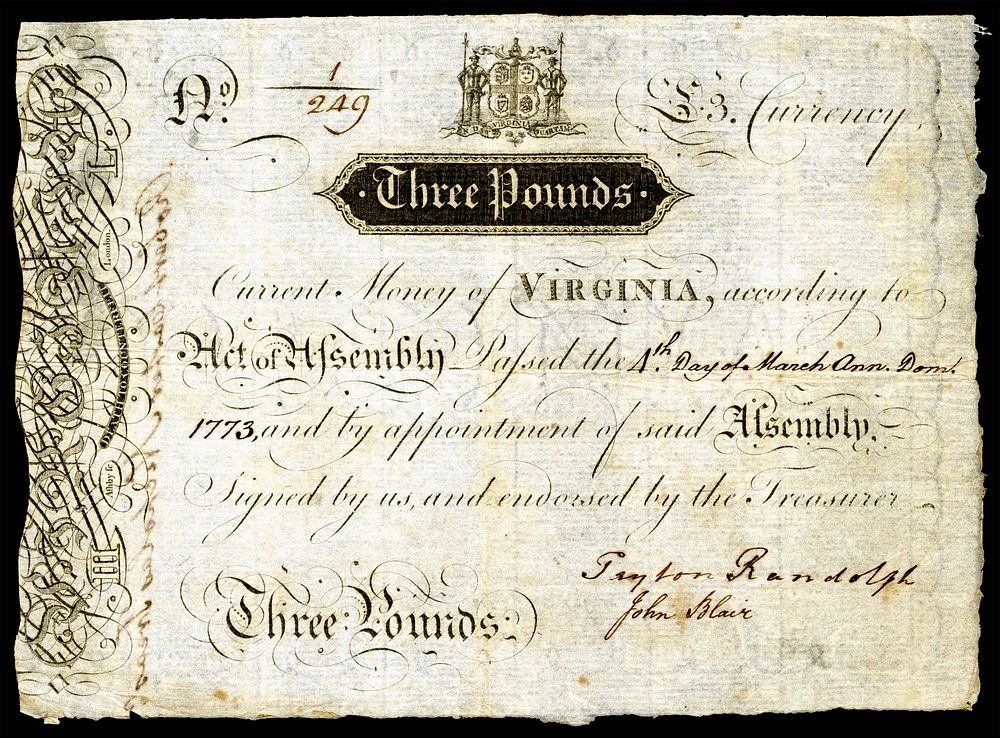 No. 1
249
EN DAT VIRGINIA QUARTAM
£3. Currency.
Three Pounds
Current Money of VIRGINIA, according to
Act of Assembly Passed the 4th. Day of March Ann. Dom.
1773, and by appointment of said Assembly.
Signed by us, and endorsed by the Treasurer.
Peyton Randolph
John Blair
Three Pounds:
L
London.
DEATH TO COUNTERFEIT
Ashby fc
III